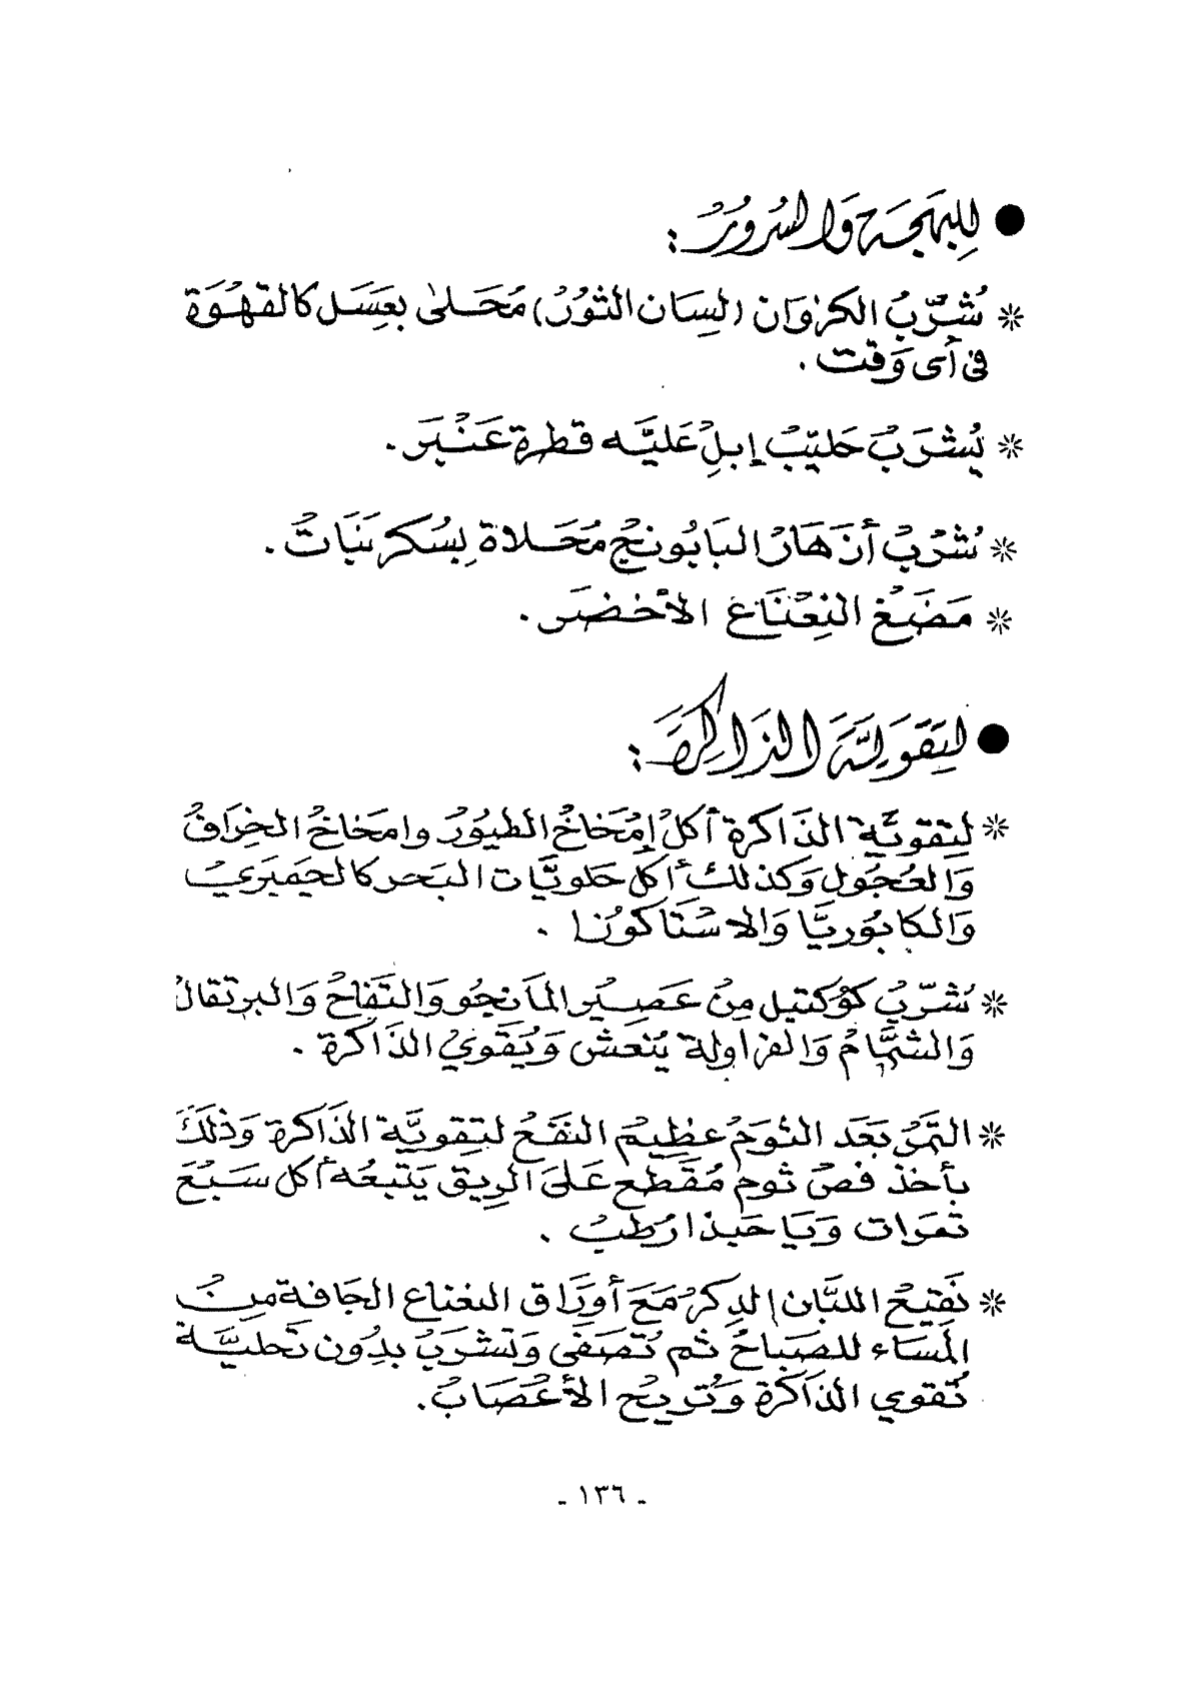 ● للبهجة والسرور :
* شرب الكروان (لسان الثور) محلى بعسل كالقهوة
فى أى وقت .
* يشرب حليب إبل عليه قطرة عنبر .
* شرب أزهار البابونج محلاة بسكر نبات .
* مضغ النعناع الأخضر .
● لتقوية الذاكرة :
* لتقوية الذاكرة أكل إمخاخ الطيور وامخاخ الخراف
والعجول وكذلك أكل حلويات البحر كالجمبري
والكابوريا والاستاكونزا .
* شرب كوكتيل من عصير المانجو والتفاح والبرتقال
والشمام والفراولة ينعش ويقوي الذاكرة .
* التمر بعد الثوم عظيم النفع لتقوية الذاكرة وذلك
بأخذ فص ثوم مقطع على الريق يتبعه أكل سبع
تمرات ويا حبذا رطب .
* نقيع اللبان الدكر مع أوراق النعناع الجافة من
المساء للصباح ثم تصفى وتشرب بدون تحلية
تقوي الذاكرة وتريح الأعصاب .
- ١٣٦ -